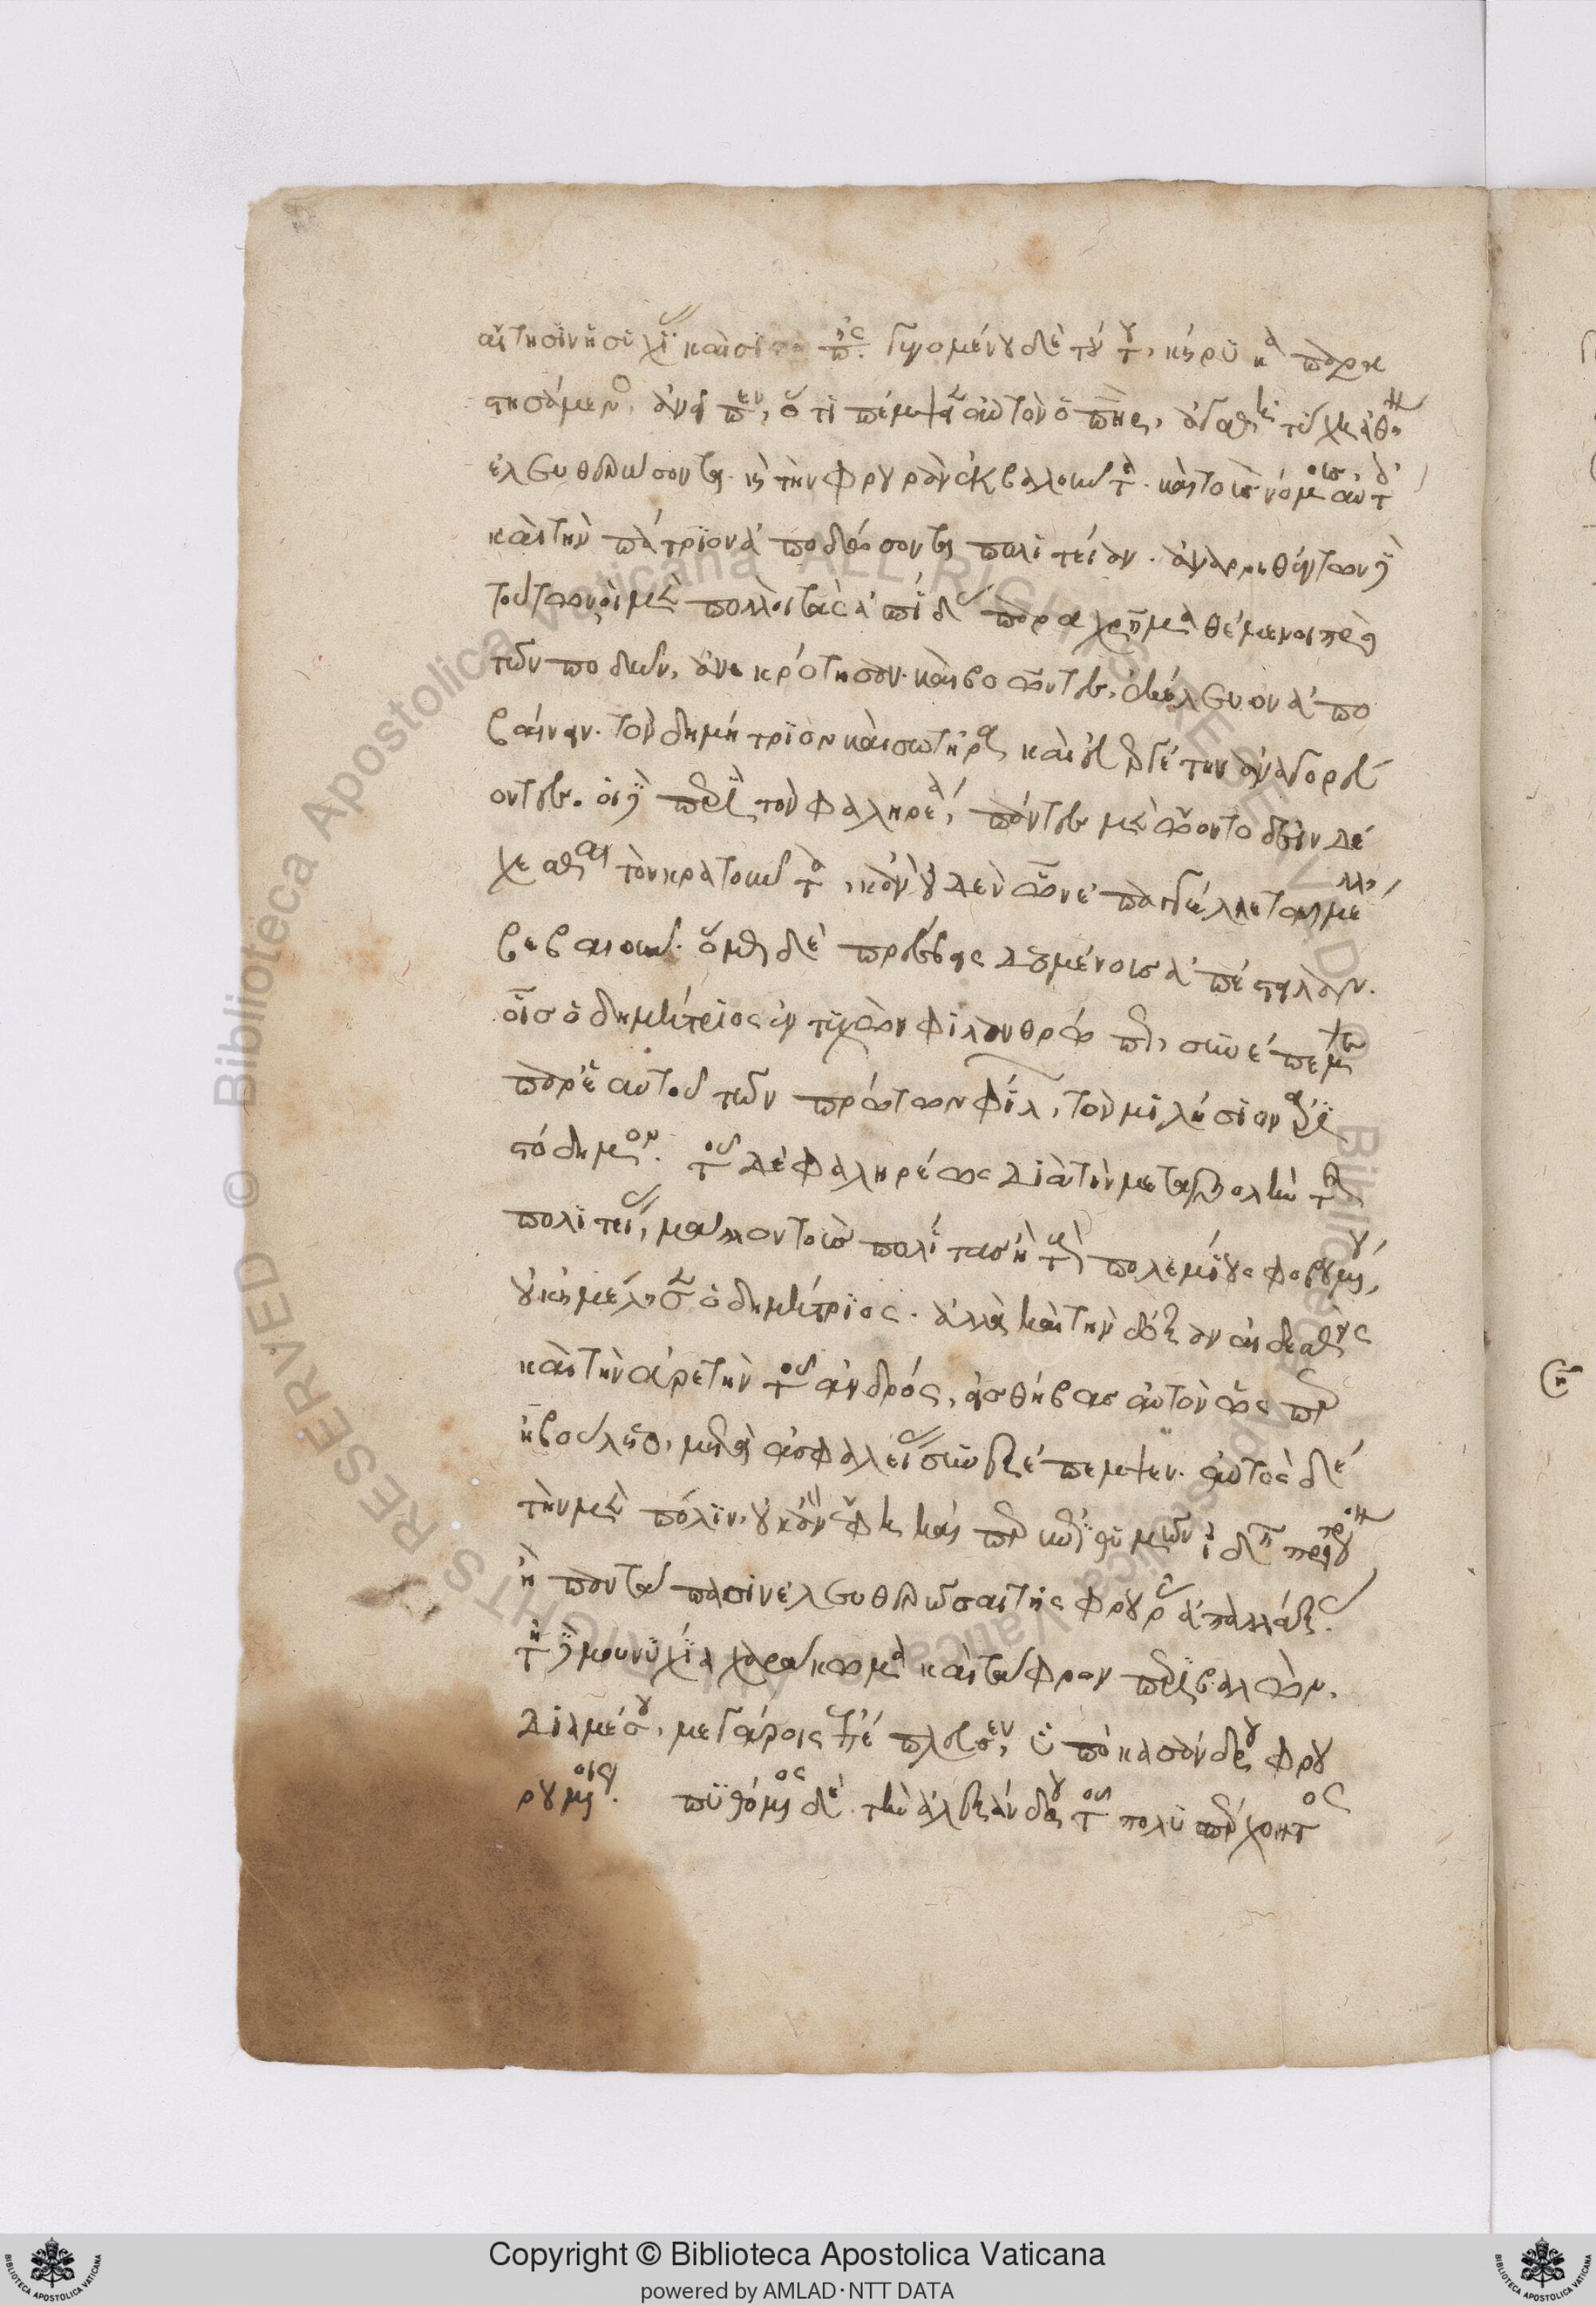 αἴτησιν ἡσυχίας καὶ σιωπῆς. γενομένου δὲ τούτου, κήρυκα παραστη
στησάμενος, ἀνεῖπεν, ὅτι πέμψειεν αὐτὸν ὁ πατὴρ, ἀγαθῇ τύχῃ ἀθην
ἐλευθερώσοντα. καὶ τὴν φρουρὰν ἐκβαλοῦντα. καὶ τοὺς νόμους αὐτ
καὶ τὴν πάτριον ἀποδώσοντα πολιτείαν. ἀναρρηθέντων δὲ
τούτων οἱ μὲν πολλοὶ τὰς ἀσπίδας παραχρῆμα θέμενοι πρὸ
τῶν ποδῶν, ἀνεκρότησαν. καὶ βοῶντες, ἐκέλευον ἀπο
βαίνειν. τὸν δημήτριον καὶ σωτῆρα καὶ εὐεργέτην ἀναγορεύ
οντες. οἱ δὲ περὶ τὸν φαληρέα, πάντες μὲν ᾤοντο δεῖν δέ
χεσθαι τὸν κρατοῦντα, κἂν οὐδὲν ὧν ἐπαγγέλλεται μέλλῃ
βεβαιοῦν. ὅμως δὲ πρέσβεις δεομένους ἀπέστειλαν.
οἷς ὁ δημήτριος ἐντυχὼν φιλανθρώπως, συνέπεμψε
παρ' ἑαυτοῦ τῶν πρώτων φίλων, τὸν μιλήσιον ἀρι
στόδημον. τοῦ δὲ φαληρέως διὰ τὴν μεταβολὴν τῆς
πολιτείας, μᾶλλον τοὺς πολίτας ἢ τοὺς πολεμίους φοβουμένου,
οὐκ ἠμέλησεν ὁ δημήτριος. ἀλλὰ καὶ τὴν δόξαν αἰδεσθεὶς
καὶ τὴν ἀρετὴν τοῦ ἀνδρός, εἰς θήβας αὐτὸν ὥσπερ
ἠβούλετο, μετὰ ἀσφαλείας συνεξέπεμψεν. αὐτὸς δὲ
τὴν μὲν πόλιν, οὐκ ἂν ἔφη καίπερ ἐπιθυμῶν ἰδεῖν πρότερον
ἢ παντάπασιν ἐλευθερῶσαι τῆς φρουρᾶς ἀπαλλάξας.
τῇ δὲ μουνυχίᾳ χαράκωμα καὶ τάφρον περιβαλών.
διὰ μέσου, μεγάροις ἐπέπλευσεν, ὑπὸ κασάνδρου φρου
ρουμένοις. πυθόμενος δὲ τὴν ἀλεξάνδρου τοῦ πολυπέρχοντος
Copyright © Biblioteca Apostolica Vaticana
powered by AMLAD·NTT DATA